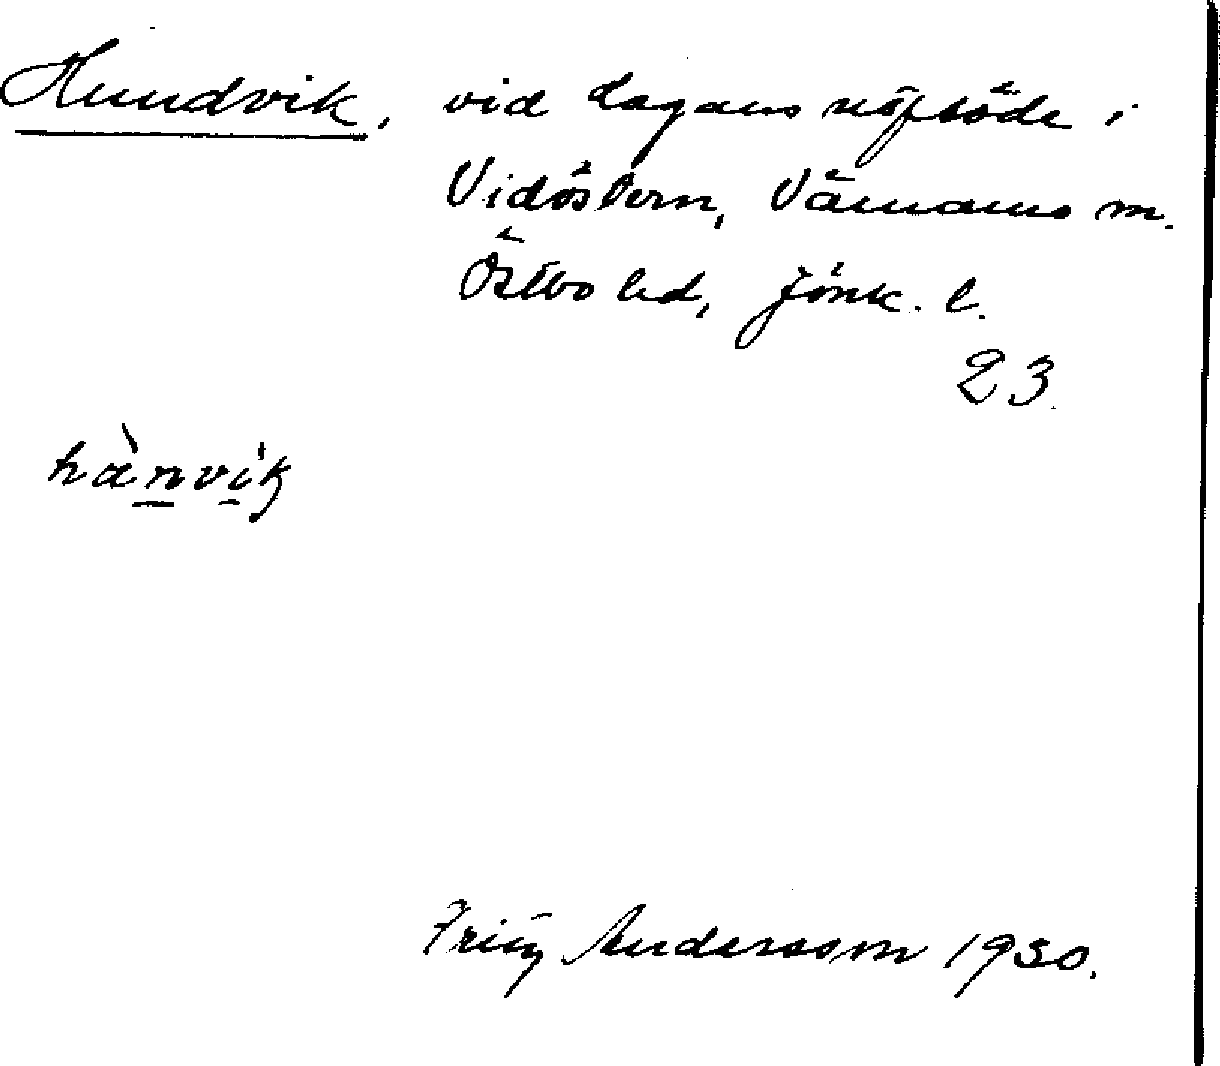 Hundvik, vid Lagans utflöde i
Vidöstern, Värnamo m.
Östbo hd, Jönk. l.
23.
hànvik
Fritz Andersson 1930.